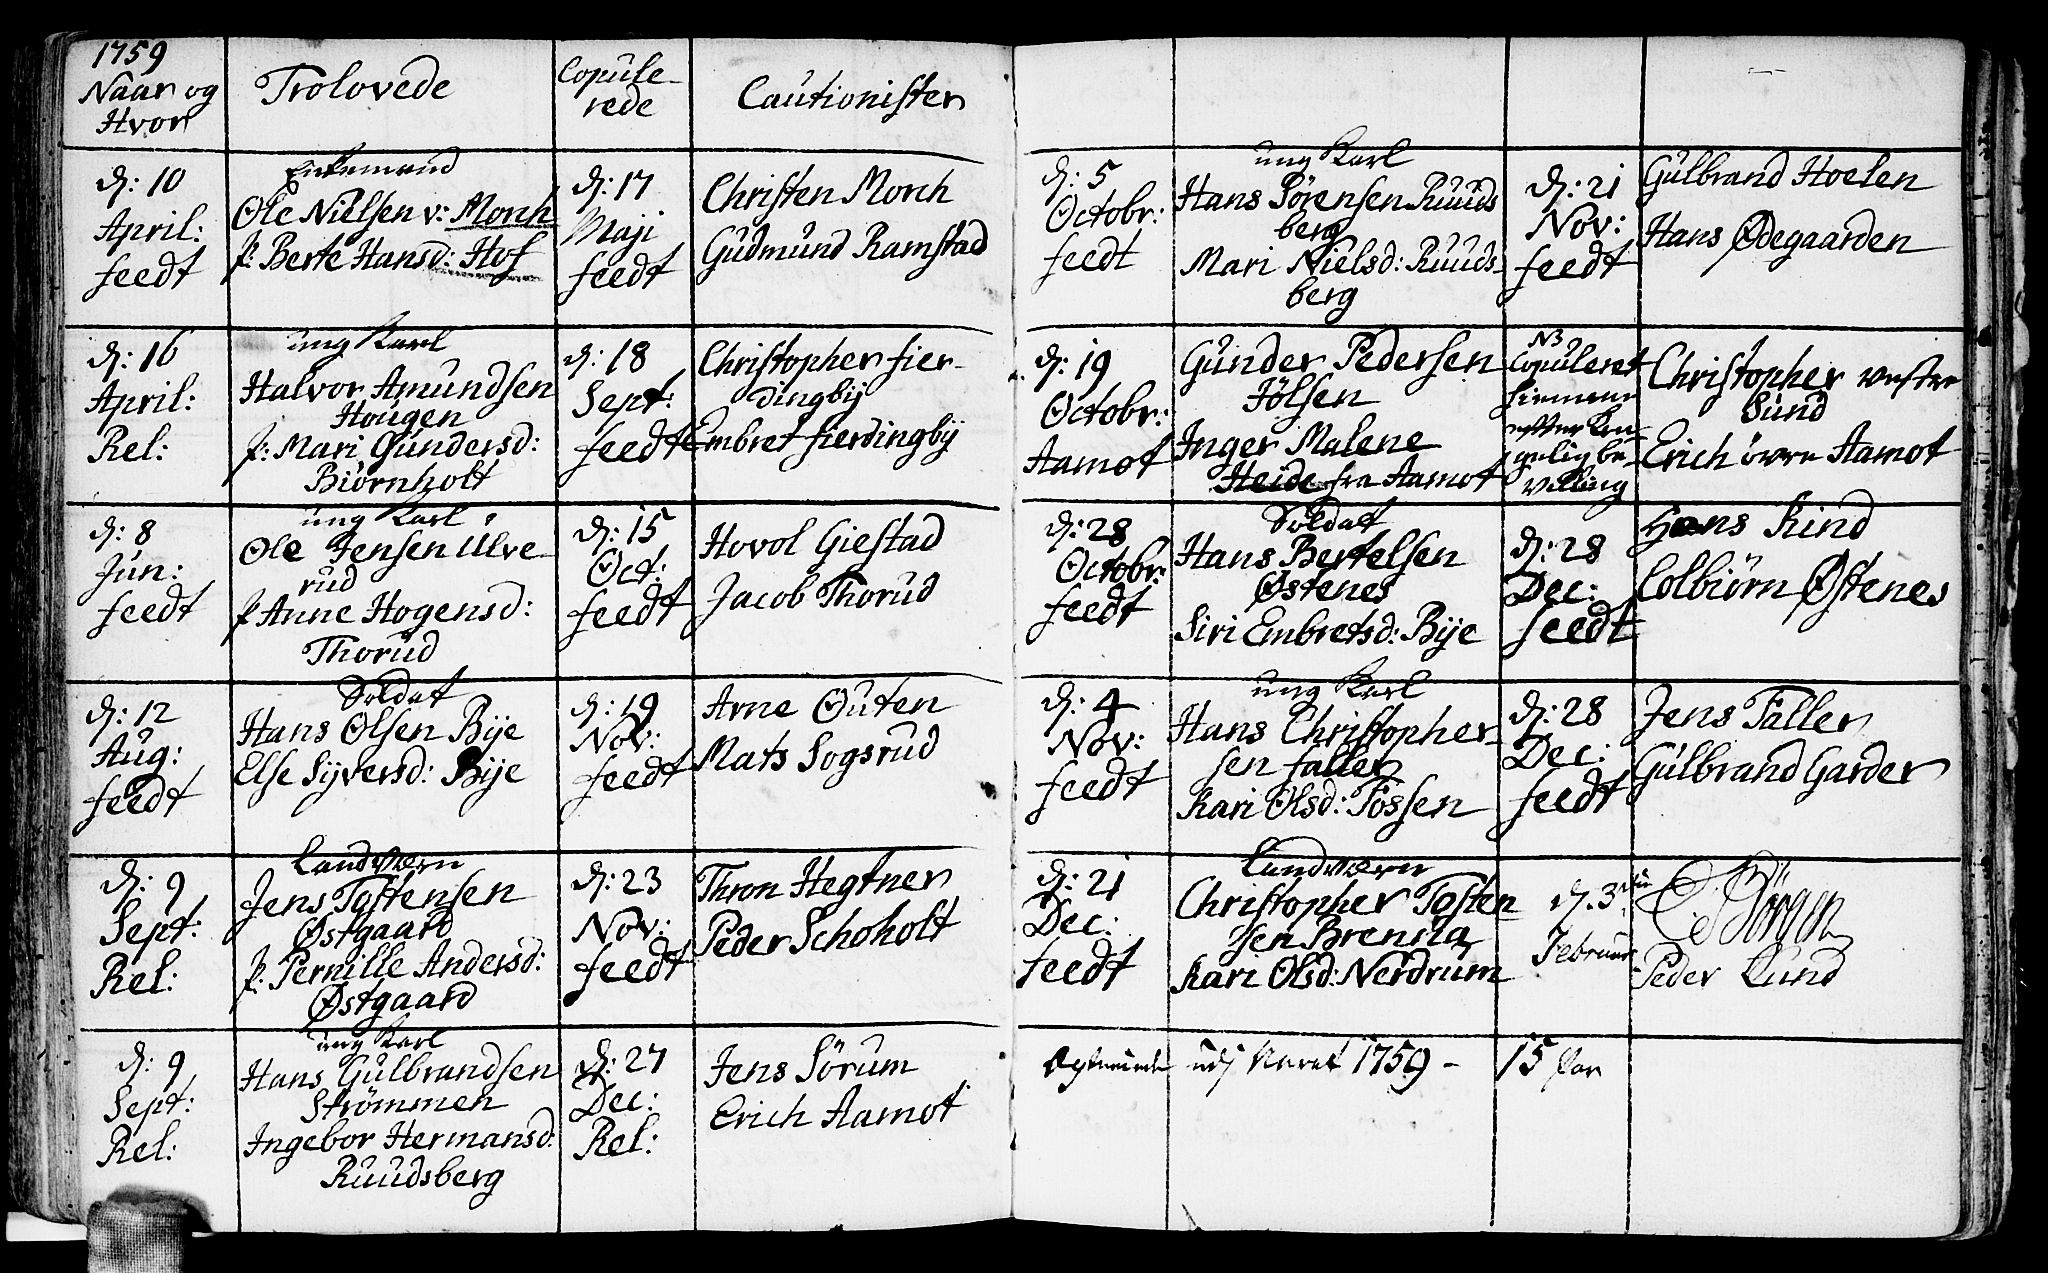 1759
Naar og
Hvor
Trolovede
Copule-
rede
Cautionister
d: 10
April:
feedt
Enkemand
Ole Nielsen v: Morch
p: Berte Hansd: Hof
d: 17
Maji
feedt
Christen Morch
Gudmund Ramstad
d: 16
April:
Rel:
ung Karl
Halvor Amundsen
Hougen
p: Mari Gundersd:
Biörnholt
d: 18
Sept:
feedt
Christopher fier-
dingbÿ
Embret fierdingbÿ
d: 8
Jun:
feedt
ung Karl
Ole Jensen Ulve-
rud
p Anne Hogensd:
Thorud
d: 15
Oct:
feedt
Hovol Giestad
Jacob Thorud
d: 12
Aug:
feedt
Soldat
Hans Olsen Bÿe
Else Syversd: Bÿe
d: 19
Nov:
feedt
Arne Outen
Mats Sogsrud
d: 9
Sept:
Rel:
Landværn
Jens Tostensen
Østgaard
p: Pernille Andersd:
Østgaard
d: 23
Nov:
feedt
Thron Hegtner
Peder Schoholt
d: 9
Sept:
Rel:
ung Karl
Hans Gulbrandsen
Strömmen
Ingebor Hermansd:
Ruudsberg
d: 27
Dec:
Rel:
Jens Sörum
Erich Aamot
d: 5
Octobr:
feedt
ung Karl
Hans Sörensen Ruuds
berg
Mari Nielsd: Ruuds-
berg
d: 21
Nov:
feedt
Gulbrand Hoelen
Hans Ødegaarden
d: 19
Octobr:
Aamot
Gunder Pedersen
Jölsen
Inger Malene
Heide fra Aamot
NB
Copuleret
hiemme
efter Kon-
gelig be-
villing
Christopher vestre
Sund
Erich övre Aamot
d: 28
Octobr:
feedt
Soldat
Hans Bertelsen
Østenes
Siri Embretsd: Bÿe
d: 28
Dec:
feedt
Hans Kind
Colbiörn Østenes
d: 4
Nov:
feedt
ung Karl
Hans Christopher-
sen faller
Kari Olsd: Fossen
d: 28
Dec:
feedt
Jens Faller
Gulbrand Garder
d: 21
Dec:
feedt
Landværn
Christopher Tosten
sen Brenna
Kari Olsd: Nerdrum
d. 3
Februar
Peder Lund
udj Aaret 1759 - 15 Par